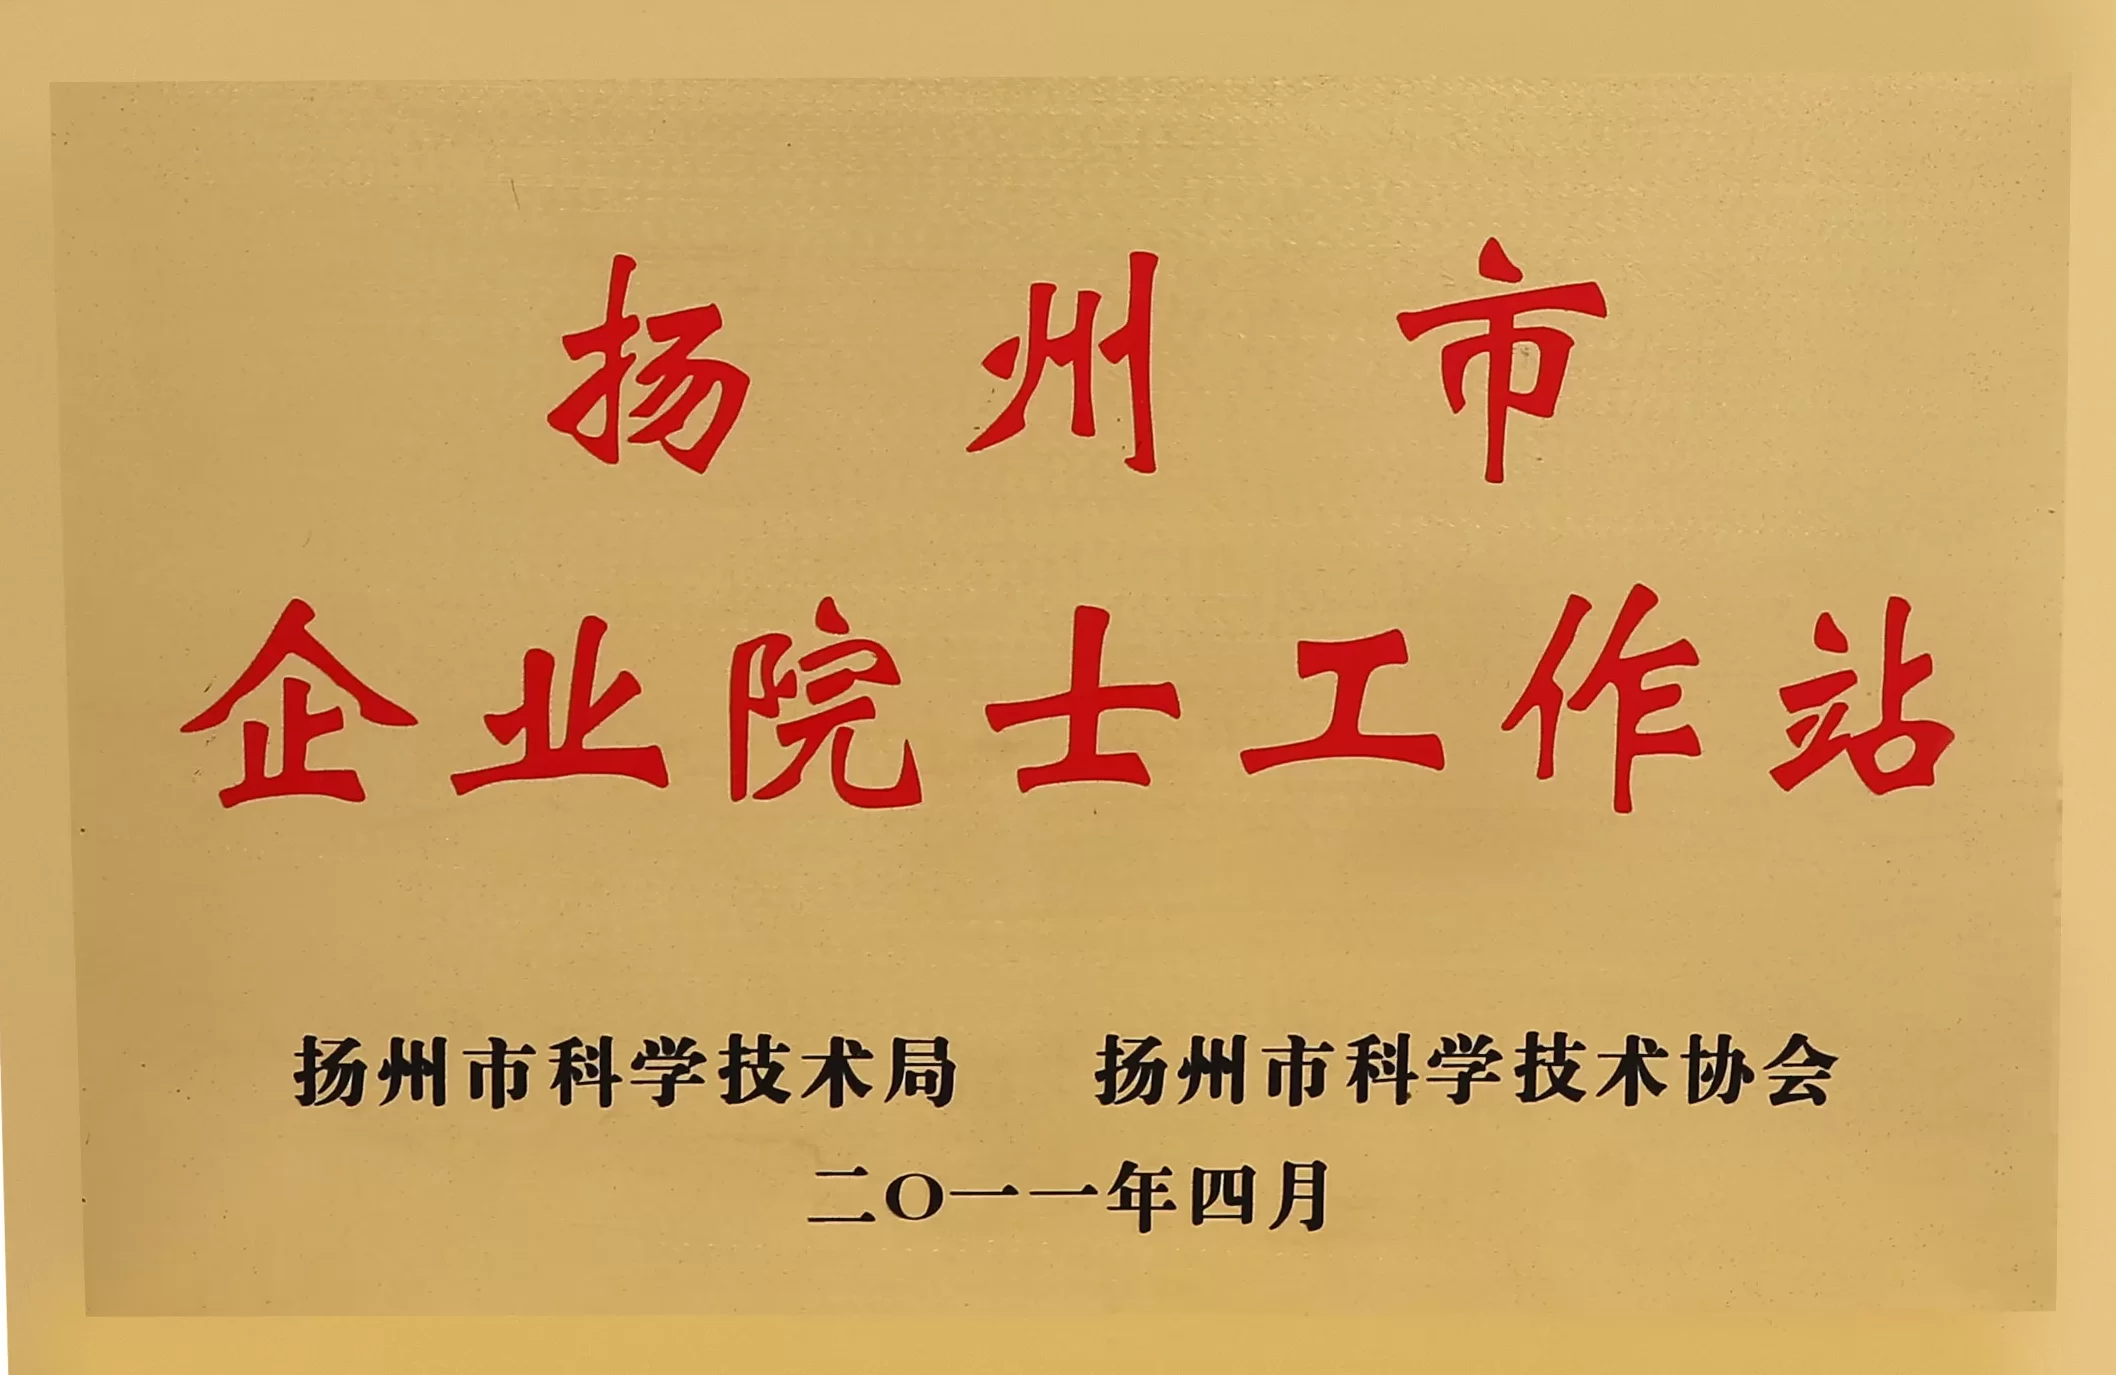 扬州市
企业院士工作站
扬州市科学技术局 扬州市科学技术协会
二〇一一年四月